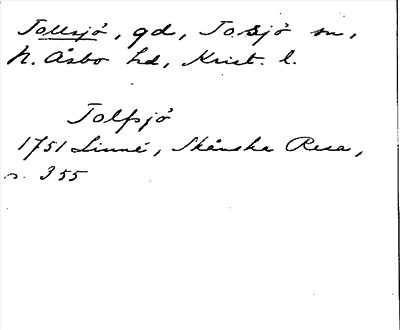 Tollsjö, gd, Tossjö sn,
N. Åsbo hd, Krist. l.
Tolfsjö
1751 Linné, Skånska Resa,
s. 355